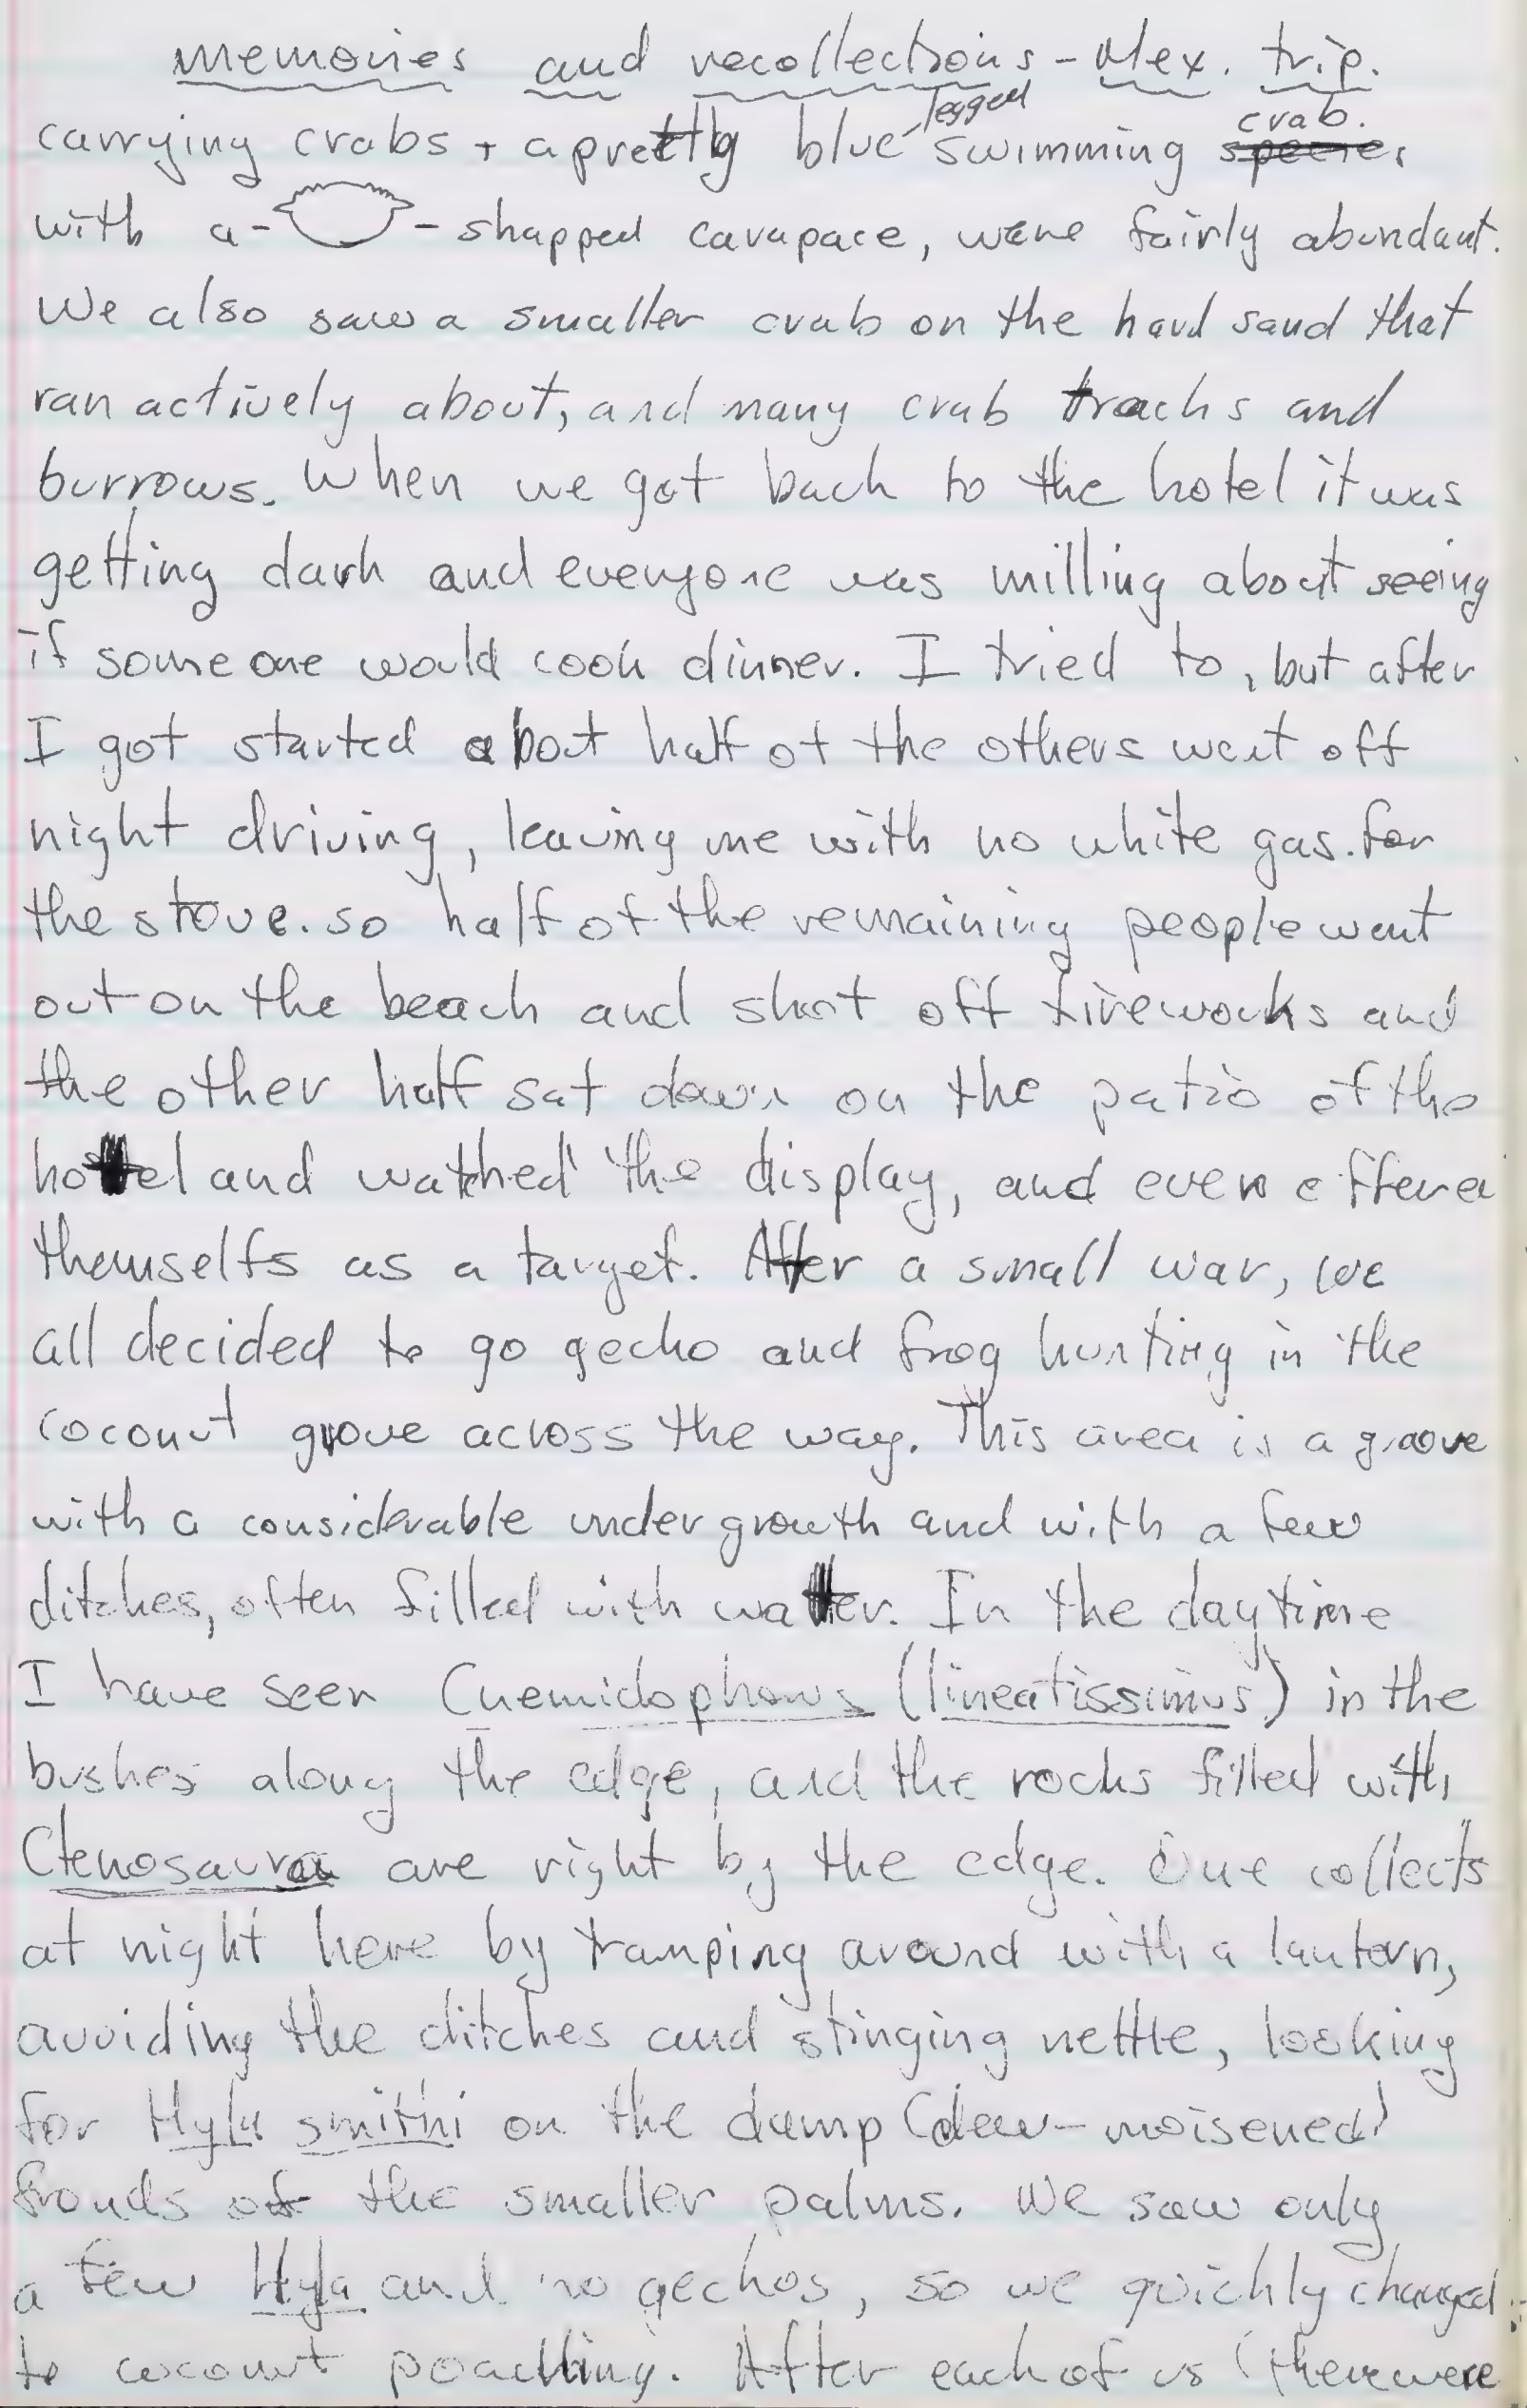 memories and recollections - Mex. trip.
carrying crabs + a pretty blue-legged swimming species crab.
with a - - shapped carapace, were fairly abundant.
We also saw a smaller crab on the hard sand that
ran actively about, and many crab tracks and
burrows. When we got back to the hotel it was
getting dark and everyone was milling about seeing
if someone would cook dinner. I tried to, but after
I got started about half of the others went off
night driving, leaving me with no white gas. for
the stove. so half of the remaining people went
out on the beach and shot off fireworks and
the other half sat down on the patio of the
hotel and watched the display, and even offered
themselfs as a target. After a small war, we
all decided to go gecko and frog hunting in the
coconut grove across the way. This area is a groove
with a considerable undergrowth and with a few
ditches, often filled with water. In the daytime
I have seen Cnemidophorus (lineatissimus) in the
bushes along the edge, and the rocks filled with
Ctenosaura are right by the edge. One collects
at night here by tramping around with a lantern,
avoiding the ditches and stinging nettle, looking
for Hyla smithi on the damp (dew-moisened)
fronds of the smaller palms. We saw only
a few Hyla and no geckos, so we quickly changed
to coconut poaching. After each of us (there were